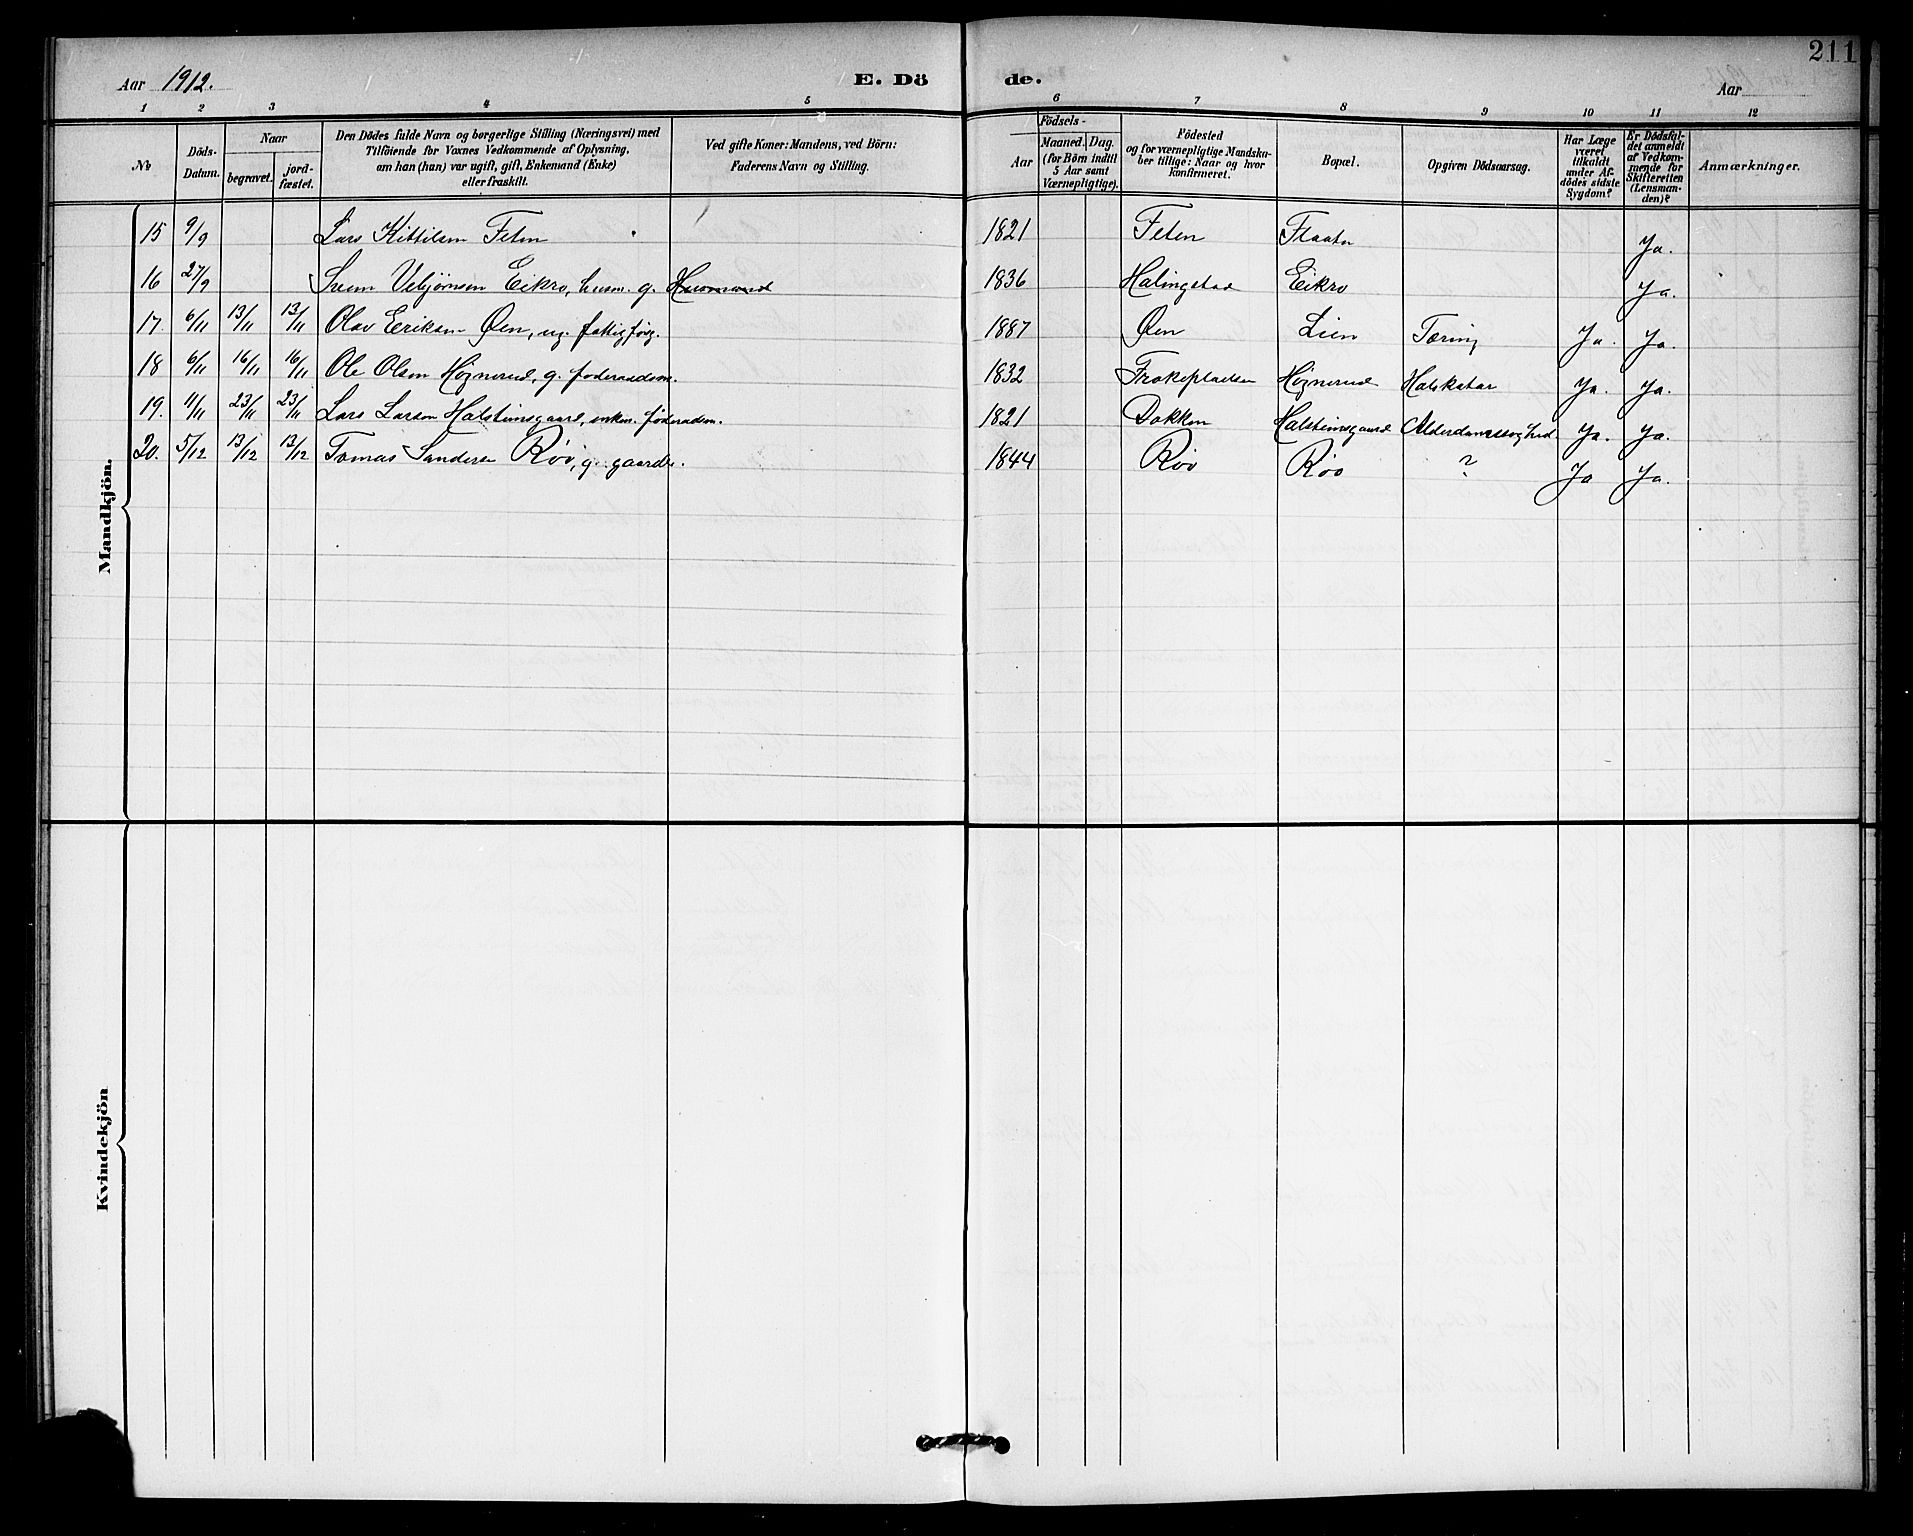 211
Aar 1912. E. Dö de. Aar
1 2 3 4 5 6 7 8 9 10 11 12
No
Döds-Datum.
Naar
begravet.
jord-fæstet.
Den Dödes fulde Navn og borgerlige Stilling (Næringsvei) med
Tilföiende for Voxnes Vedkommende af Oplysning,
om han (han) var ugift, gift, Enkemand (Enke)
eller fraskilt.
Ved gifte Koner: Mandens, ved Börn:
Faderens Navn og Stilling.
Födsels-
Aar
Maaned. Dag.
(for Börn indtil
5 Aar samt
Værnepligtige).
Födested
og for værnepligtige Mandska-
ber tillige: Naar og hvor
konfirmeret.
Bopæl.
Opgiven Dödsaarsag.
Har Læge
været
tilkaldt
under Af-
dödes sidste
Sygdom?
Er Dödsfal-
det anmeldt
af Vedkom-
mende for
Skifteretten
(Lensman-
den)?
Anmærkninger.
Mandkjön.
15 9/9 Lars Kittilsen Feten 1821 Feten Flaaten Ja.
16 27/9 Svein Vebjørnsen Eikro, husm. g. Husmand 1836 Halingstad Eikro Ja.
17. 6/11 13/11 13/11 Olav Eriksen Øen, ug. fattigforg. 1887 Øen Lien Tæring Ja. Ja.
18 6/11 16/11 16/11 Ole Olsen Høgnerud, g. føderaadsm. 1832 Høgnerud Ja. Ja.
19. 11/11 23/11 23/11 Lars Larsen Halsteinsgaard, enkem. føderaadsm. 1821 Dokken Halsteinsgaard Alderdomssvaghed. Ja. Ja.
20. 5/12 13/12 13/12 Tomas Sandersen Røv, g. gaardb. 1844 Røv Røv ? Ja Ja.
Kvindekjön